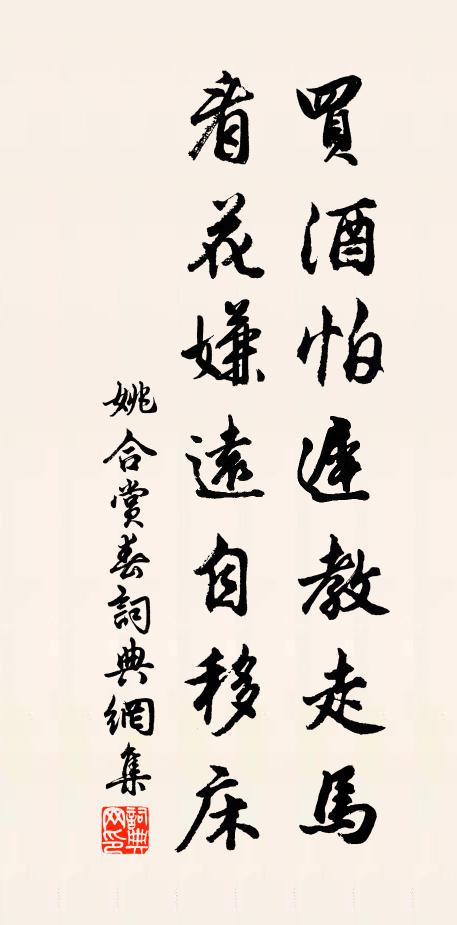 買酒怕遲教走馬
看花嫌遠自移床
姚合賞春詞典網集
詞典網印